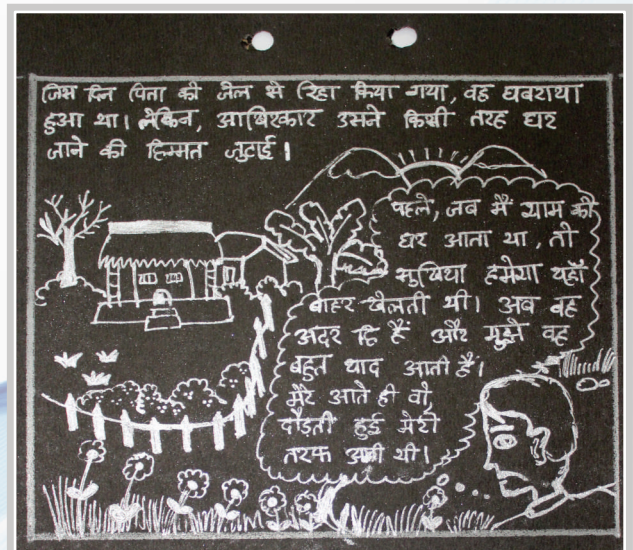 जिस दिन पिता को जेल से रिहा किया गया, वह घबराया
हुआ था। लेकिन, आखिरकार उसने किसी तरह घर
जाने की हिम्मत जुटाई।
पहले, जब मैं शाम को
घर आता था, तो
सुखिया हमेशा यहाँ
बाहर खेलती थी। अब वह
अदर हि हैं और मुझे वह
बहुत याद आती हैं।
मेरे आते ही वो
दौडती हुई मेरी
तरफ आती थी।